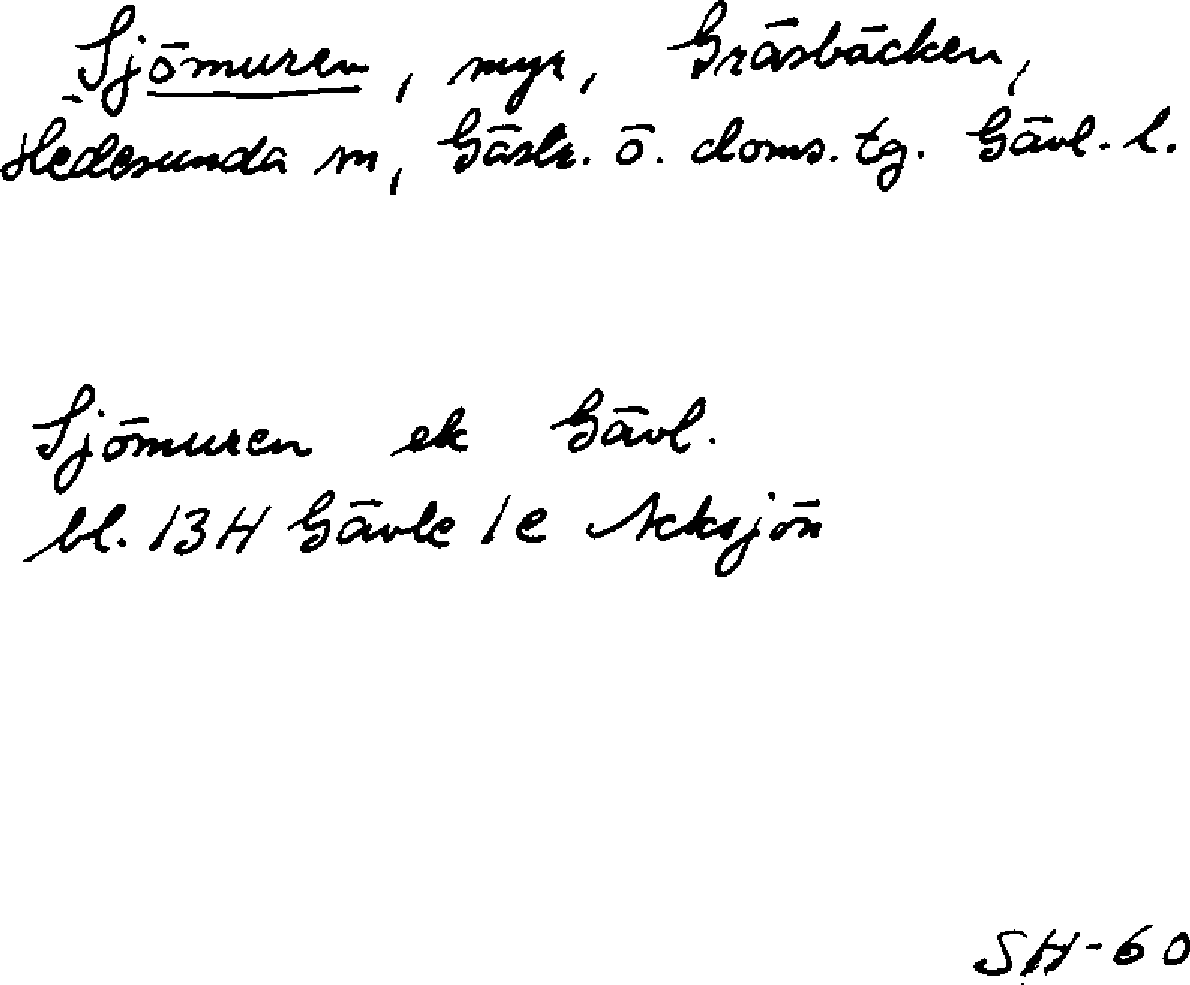 Sjömuren, myr, Gräsbäcken,
Hedesunda sn, Gästr. ö. doms. tg. Gävl. l.
Sjömuren ek Gävl.
bl. 13H Gävle 1e Acksjön
SH-60